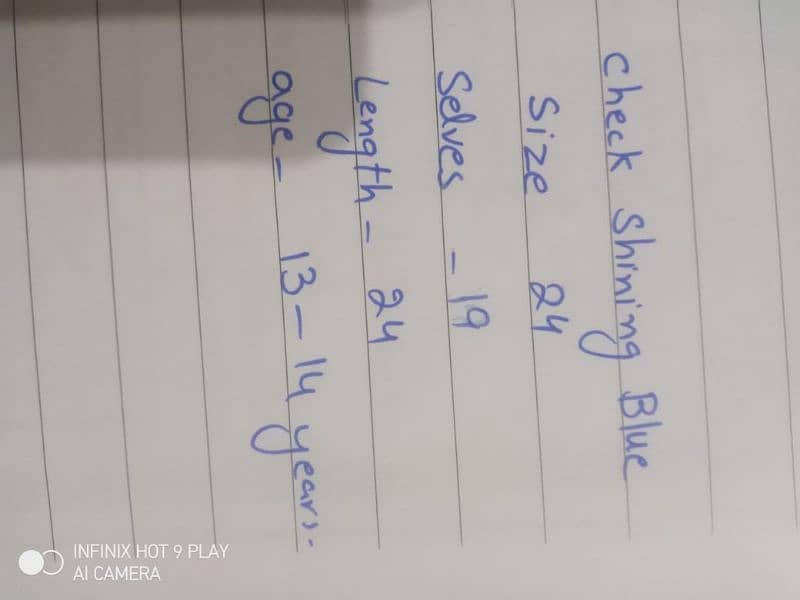 Check Shining Blue
Size 24
Selves - 19
Length - 24
age - 13 - 14 years.
INFINIX HOT 9 PLAY
AI CAMERA